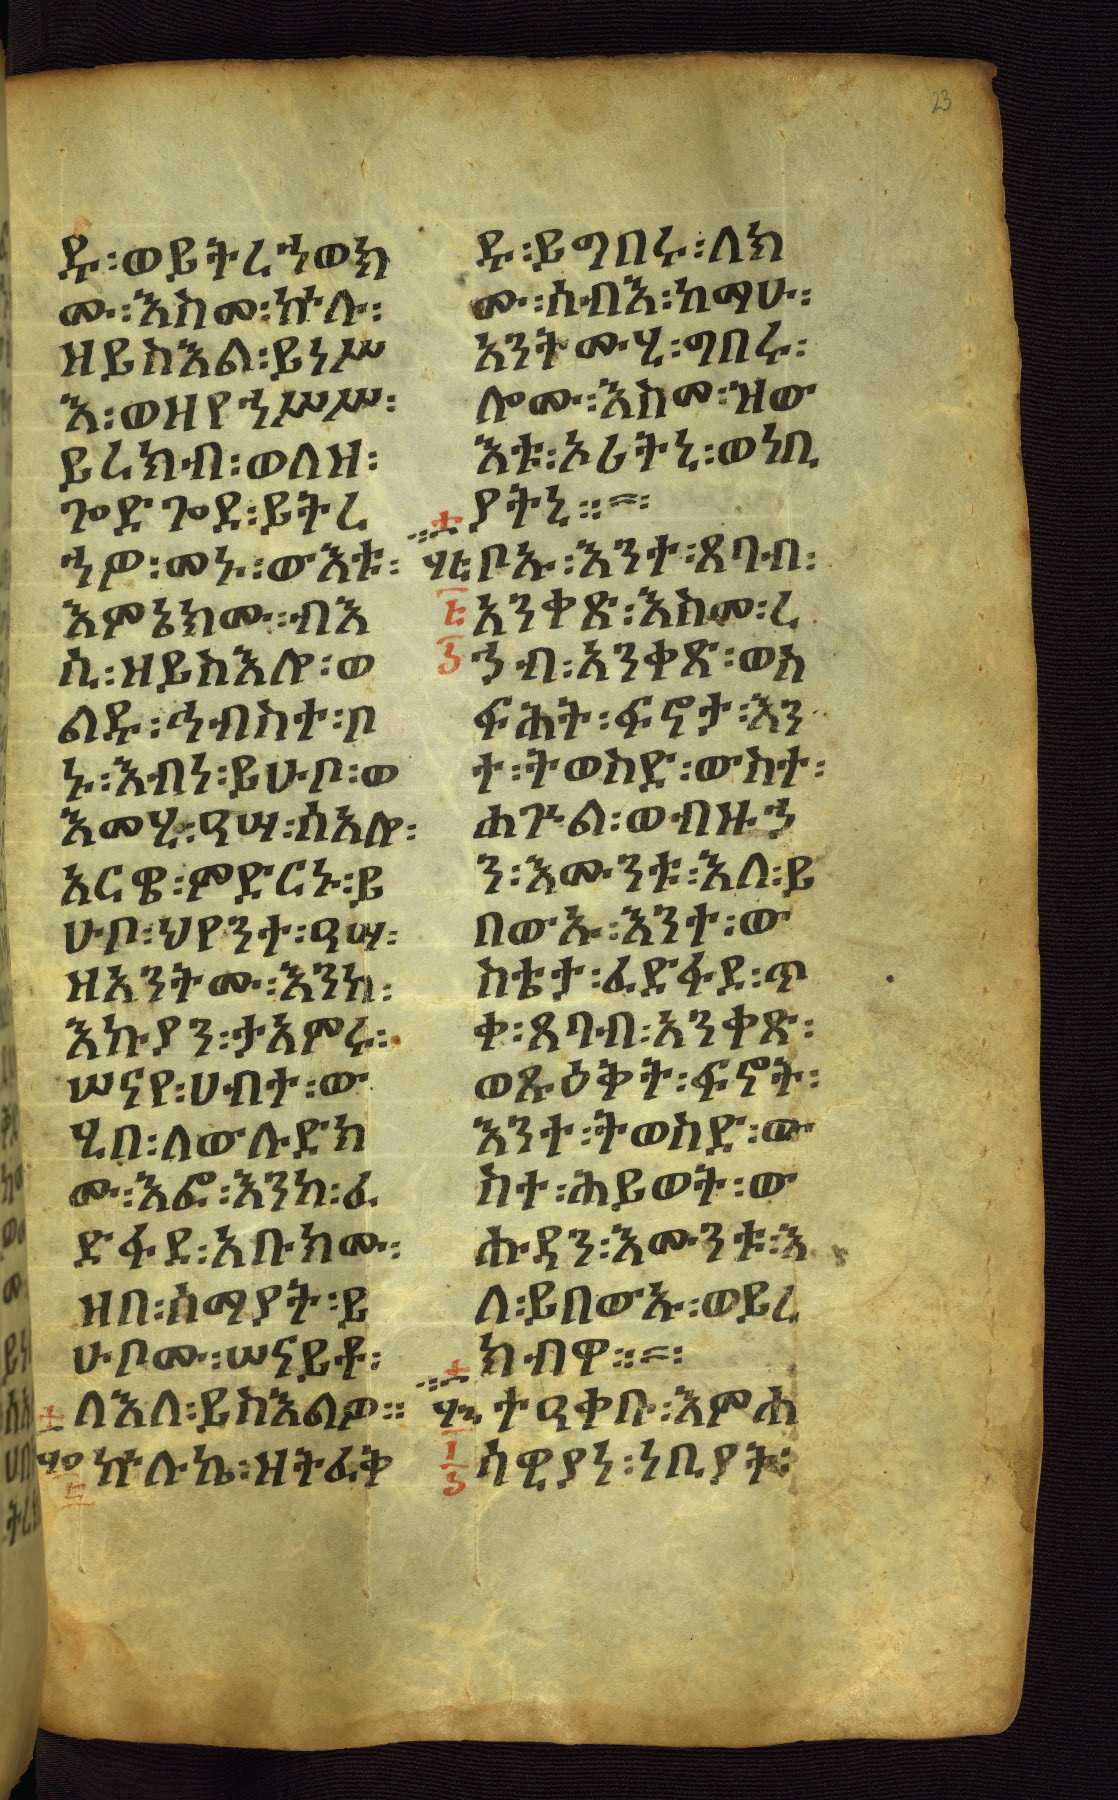 23
ዱ፡ወይትረኀወክ
ሙ፡እስመ፡ኵሉ፡
ዘይስእል፡ይነሥ
እ፡ወዘየኀሥሥ፡
ይረክብ፡ወለዘ፡
ጐድጐደ፡ይትረ
ኀዎ፡መኑ፡ውእቱ፡
እምኔክሙ፡ብእ
ሲ፡ዘይስእሎ፡ወ
ልዱ፡ኅብስተ፡ቦ
ኑ፡እብነ፡ይሁቦ፡ወ
እመሂ፡ዓሣ፡ሰአሎ፡
አርዌ፡ምድርኑ፡ይ
ሁቦ፡ህየንተ፡ዓሣ፡
ዘአንትሙ፡እንከ፡
እኩያን፡ታአምሩ፡
ሠናየ፡ሀብተ፡ው
ሂበ፡ለውሉድክ
ሙ፡እፎ፡እንከ፡ፈ
ድፋደ፡አቡክሙ፡
ዘበ፡ሰማያት፡ይ
ሁቦሙ፡ሠናይቶ፡
ለእለ፡ይስእልዎ።
ኵሉኬ፡ዘትፈቅ
ዱ፡ይግበሩ፡ለክ
ሙ፡ሰብእ፡ከማሁ፡
አንትሙሂ፡ግበሩ፡
ሎሙ፡እስመ፡ዝው
እቱ፡ኦሪትኒ፡ወነቢ
ያትኒ።
ቦኡ፡እንተ፡ጸባብ፡
አንቀጽ፡እስመ፡ረ
ኅብ፡አንቀጽ፡ወአ
ፍሕት፡ፍኖታ፡እን
ተ፡ትወስድ፡ውስተ፡
ሐጕል፡ወብዙኅ
ን፡እሙንቱ፡እለ፡ይ
በውኡ፡እንተ፡ው
ስቴታ፡ፈድፋደ፡ጥ
ቀ፡ጸባብ፡አንቀጽ፡
ወጽዕቅት፡ፍኖት፡
እንተ፡ትወስድ፡ው
ስተ፡ሕይወት፡ው
ሑዳን፡እሙንቱ፡እ
ለ፡ይበውኡ፡ወይረ
ክብዋ።
ተዓቀቡ፡እምሐ
ሰዊያነ፡ነቢያት፡